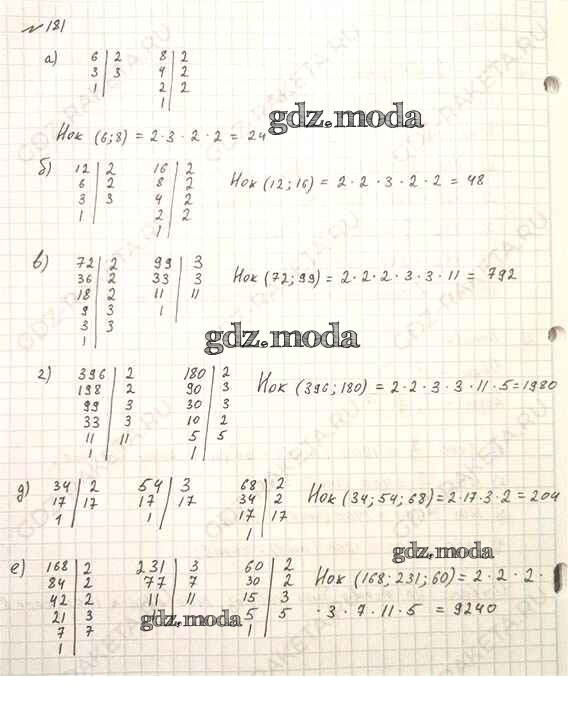 № 181
а) 6 | 2   8 | 2
3 | 3   4 | 2
1 |   2 | 2
1 |
gdz.moda
Нок (6;8) = 2·3·2·2 = 24
б) 12 | 2   16 | 2
6 | 2   8 | 2
3 | 3   4 | 2
1 |   2 | 2
1 |
Нок (12;16) = 2·2·3·2·2 = 48
в) 72 | 2   99 | 3
36 | 2   33 | 3
18 | 2   11 | 11
9 | 3   1 |
3 | 3
1 |
Нок (72;99) = 2·2·2·3·3·11 = 792
gdz.moda
г) 396 | 2   180 | 2
198 | 2   90 | 3
99 | 3   30 | 3
33 | 3   10 | 2
11 | 11   5 | 5
1 |   1 |
Нок (396;180) = 2·2·3·3·11·5=1980
д) 34 | 2   54 | 3   68 | 2
17 | 17   17 | 17   34 | 2
1 |   1 |   17 | 17
1 |
Нок (34;54;68)=2·17·3·2=204
gdz.moda
е) 168 | 2   231 | 3   60 | 2
84 | 2   77 | 7   30 | 2
42 | 2   11 | 11   15 | 3
21 | 3   5 | 5
7 | 7   1 |
1 |
Нок (168;231;60)=2·2·2·
·3·7·11·5 = 9240
gdz.moda
GDZ-RAKETA.RU